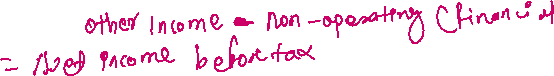 other Income - non-operating (financial
= Net income before tax